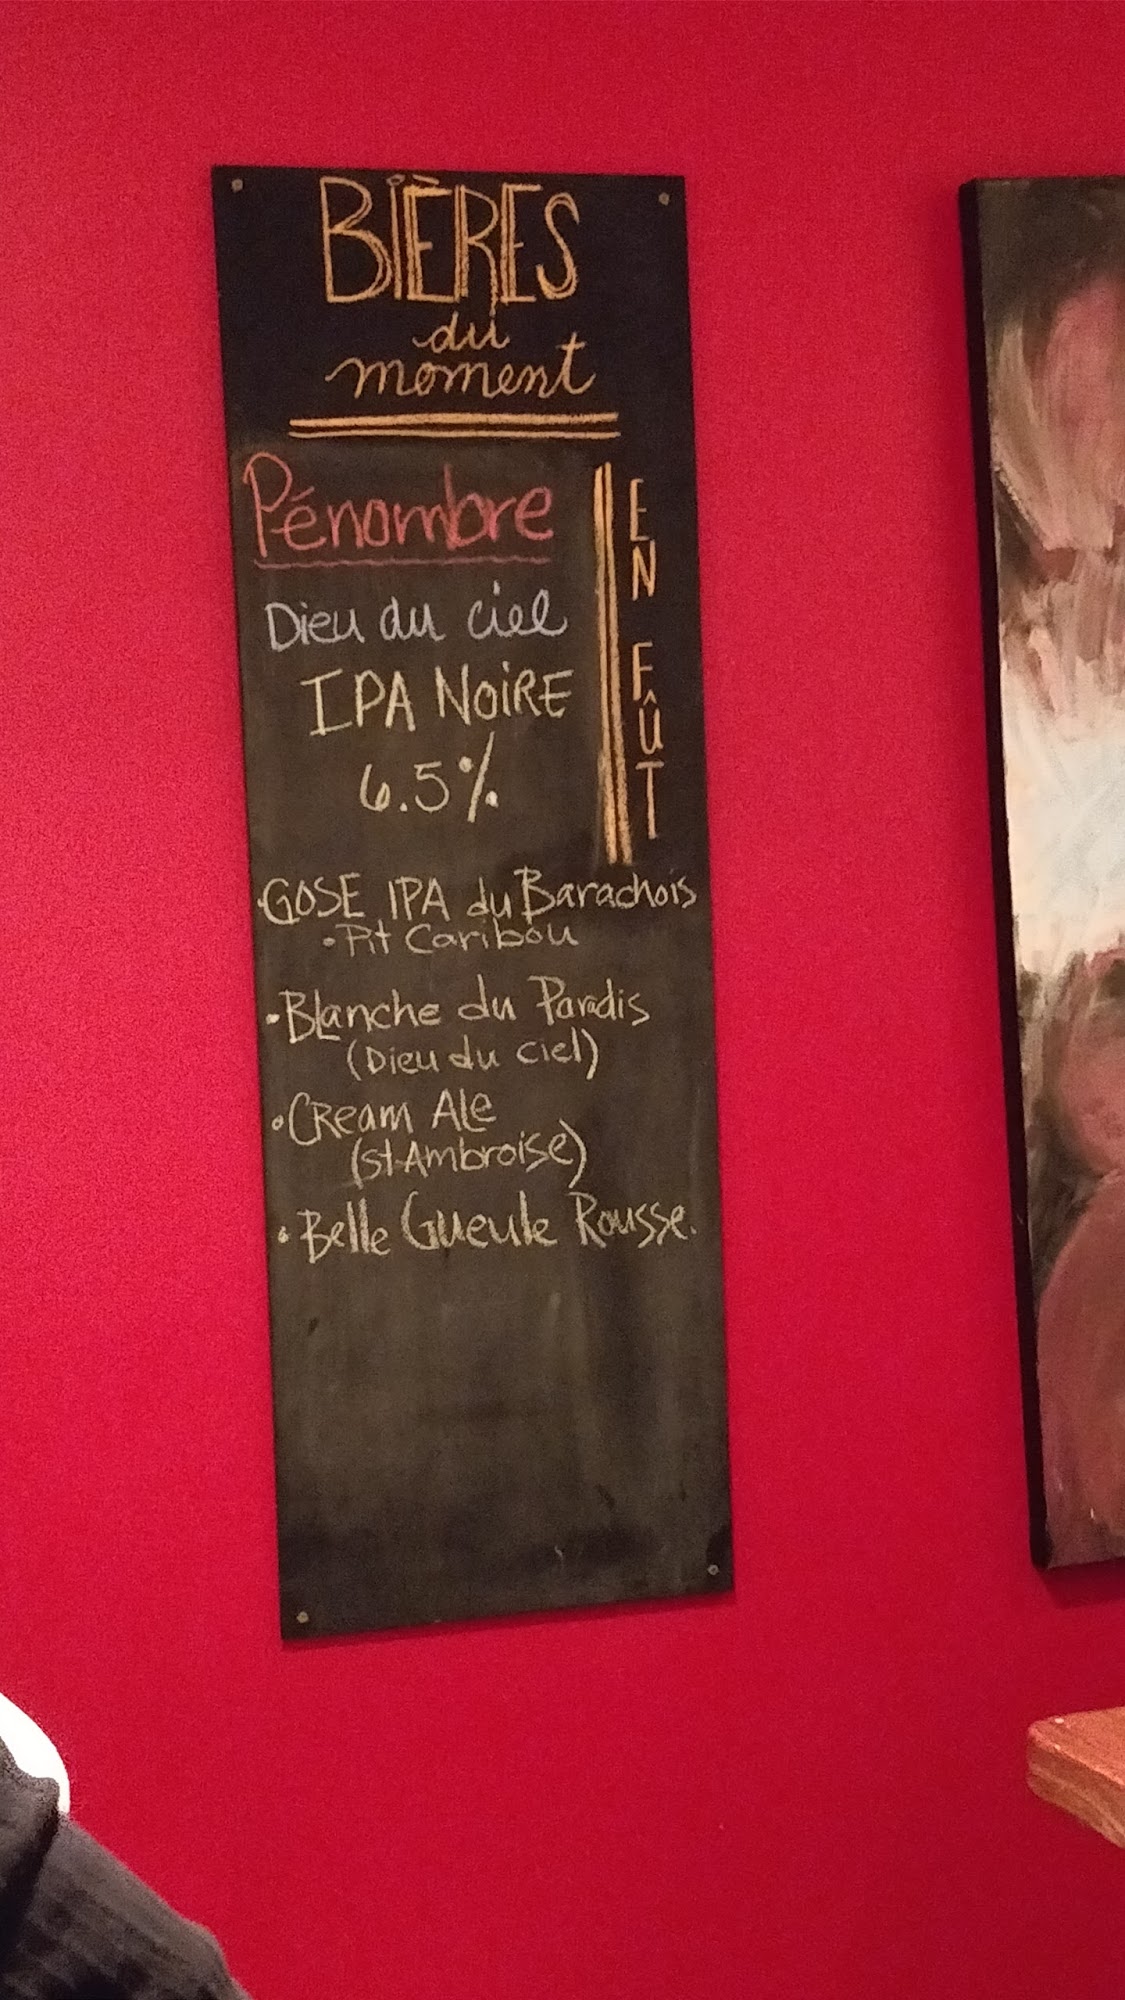 BIÈRES
du
moment
Pénombre
EN FÛT
Dieu du ciel
IPA NOIRE
6.5%
·GOSE IPA du Barachois
·Pit Caribou
·Blanche du Paradis
(Dieu du ciel)
·CREAM ALE
(St-Ambroise)
·Belle Gueule Rousse.